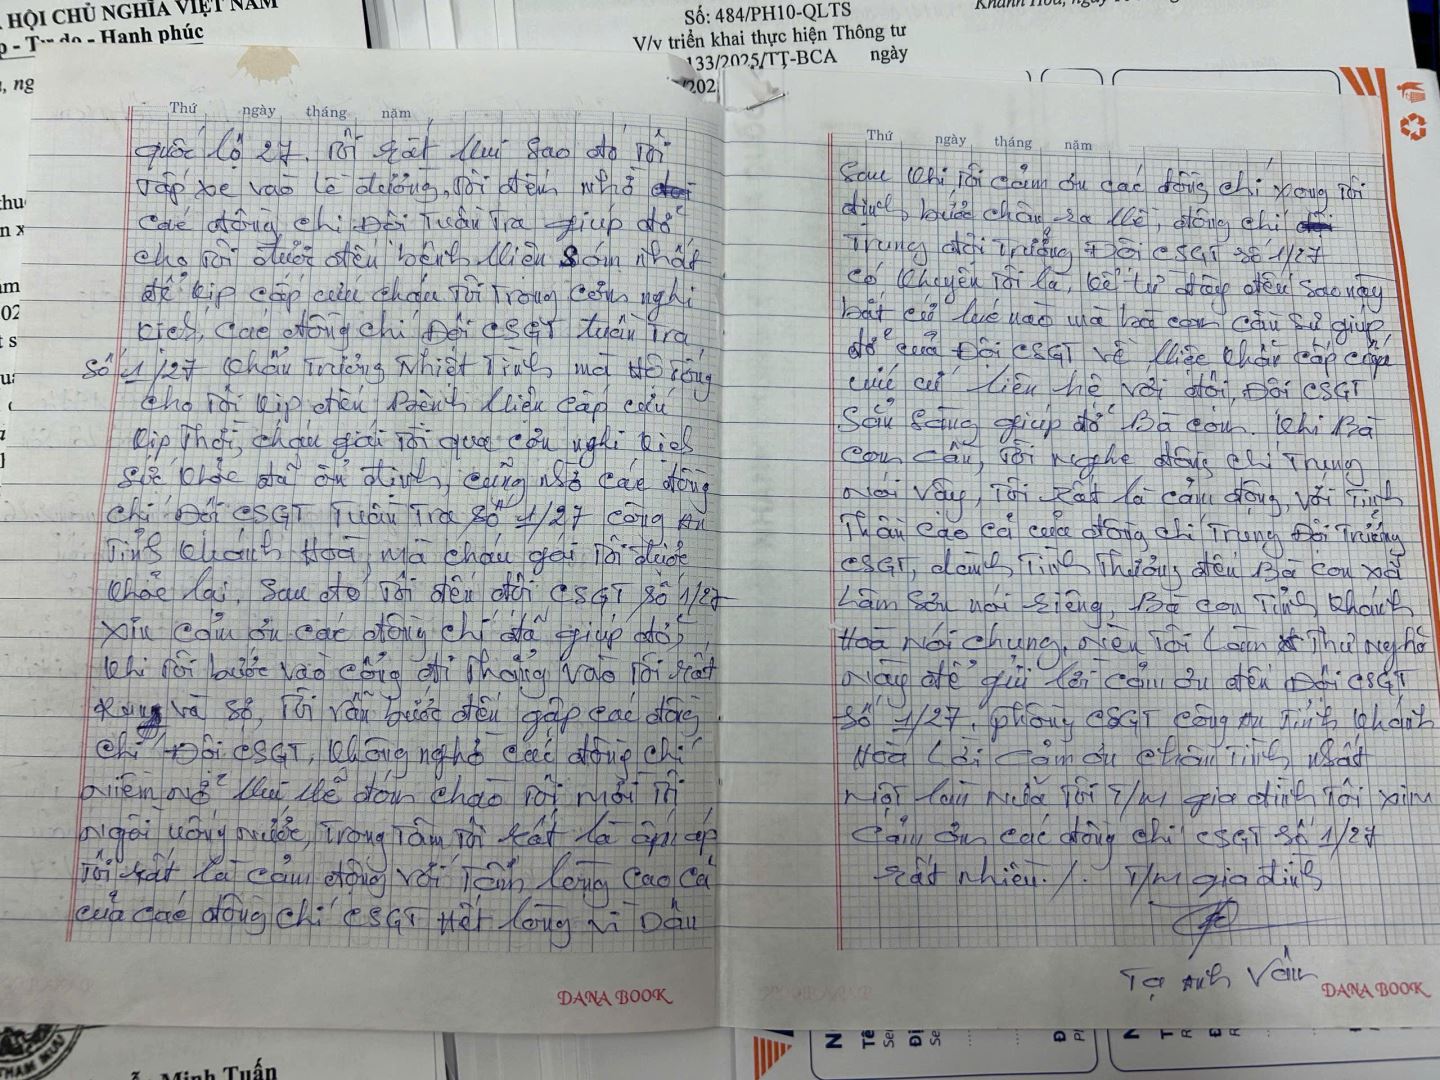 HỘI CHỦ NGHĨA VIỆT NAM
- Tự do - Hạnh phúc
Số: 484/PH10-QLTS
V/v triển khai thực hiện Thông tư
133/2025/TT-BCA ngày
Thứ ngày tháng năm
quốc lộ 27. Tôi rất vui sao đó tôi
tấp xe vào lề đường, tôi đến nhờ
các đồng chí Đội Tuần Tra giúp đỡ
cho tôi được đến bệnh viện sớm nhất
để kịp cấp cứu cháu tôi trong cơn nghi
kịch, các đồng chí Đội CSGT tuần tra
số 1/27 khẩn trưởng nhiệt tình mở
cho tôi kịp đến bệnh viện cấp cứu
kịp thời, cháu gái tôi qua cơn nghi kịch
sức khỏe đã ổn định, cũng nhờ các đồng
chí Đội CSGT Tuần Tra số 1/27 công an
Tỉnh Khánh Hoà, mà cháu gái tôi được
khỏe lại. Sau đó tôi đến đội CSGT số 1/27
xin cảm ơn các đồng chí đã giúp đỡ,
khi tôi bước vào cổng đi thẳng vào tôi rất
run và sợ, tôi vẫn bước đến gặp các đồng
chí Đội CSGT, không nghờ các đồng chí
niềm nở vui vẻ đón chào tôi mời tôi
ngồi uống nước, trong tâm tôi rất là ấm áp
tôi rất là cảm động với tấm lòng cao cả
của các đồng chí CSGT hết lòng vì Dân
DANA BOOK
Thứ ngày tháng năm
Sau khi tôi cảm ơn các đồng chí xong tôi
định bước chân ra về, đồng chí
Trung đội trưởng Đội CSGT số 1/27
có khuyên tôi là, kể từ đây đến sao này
bất cứ lúc nào mà bà con cần sự giúp
đỡ của Đội CSGT về việc khẩn cấp
cứ liên hệ với đội, Đội CSGT
sẵn sàng giúp đỡ Bà con. Khi Bà
con cần, tôi nghe đồng chí Trung
nói vậy, tôi rất là cảm động, với tinh
thần cao cả của đồng chí Trung Đội Trưởng
CSGT, dành tình thương đến Bà con xã
Lâm Sơn nói riêng, Bà con Tỉnh Khánh
Hoà nói chung, nên tôi làm thư ngõ
này để gửi lời cảm ơn đến Đội CSGT
số 1/27, phòng CSGT công an Tỉnh Khánh
Hoà lời cảm ơn chân tình nhất
một lần nữa tôi T/m gia đình tôi xin
cảm ơn các đồng chí CSGT số 1/27
rất nhiều./. T/m gia đình
Tạ Anh Văn
DANA BOOK
Minh Tuấn